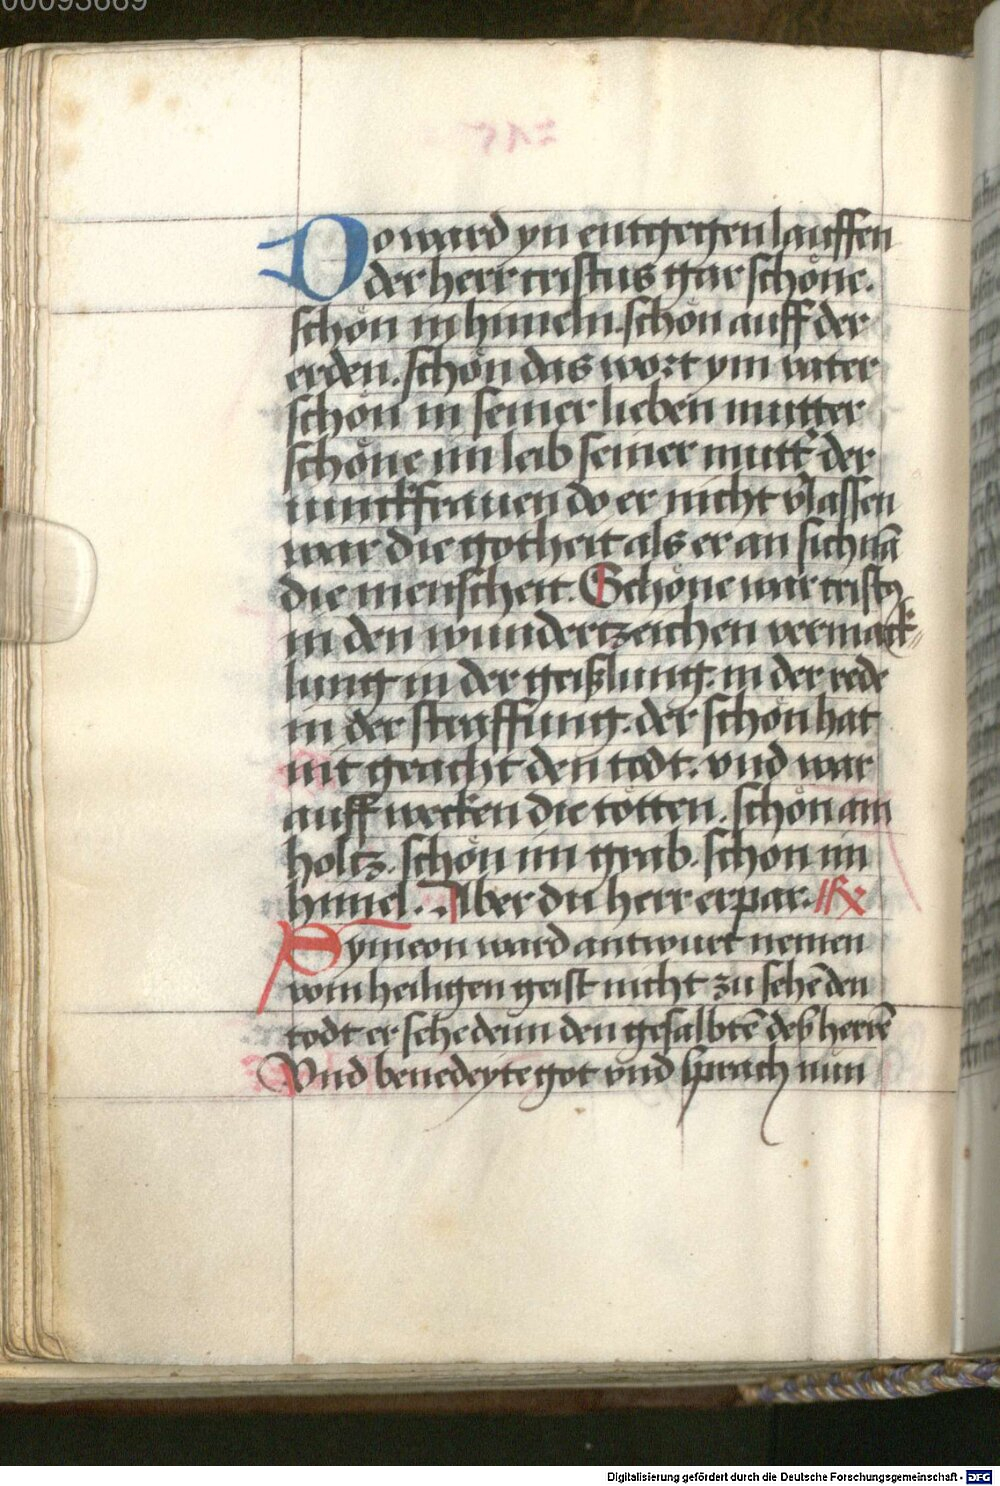 00093669
Do ward yn entgegen lauffen
der herr cristus gar schöne.
schön in himeln. schön auff der
erden. schön das wort ym vater
schön in seiner lieben mutter
schöne im leib seiner mutt̉ der
iunckfrauen do er nicht v̉lassen
war die gotheit als er an sich nā
die menscheit. Schöne war cristꝰ
in den wundertzeichen vermack⸗
lung in der geißlung. in der rede
in der straffung. der schön hat
nit geacht den todt. vnd war
auff wecken die tötten. schön am
holtz. schön im grab. schon im
himel. Aber du herr erpar.
Symeon ward antwurt nemen
vom heiligen geist nicht zu sehē den
todt er sehe denn den gesalbtē deß herrē
Vnd benedeyte got vnd sprach nun
Digitalisierung gefördert durch die Deutsche Forschungsgemeinschaft - DFG